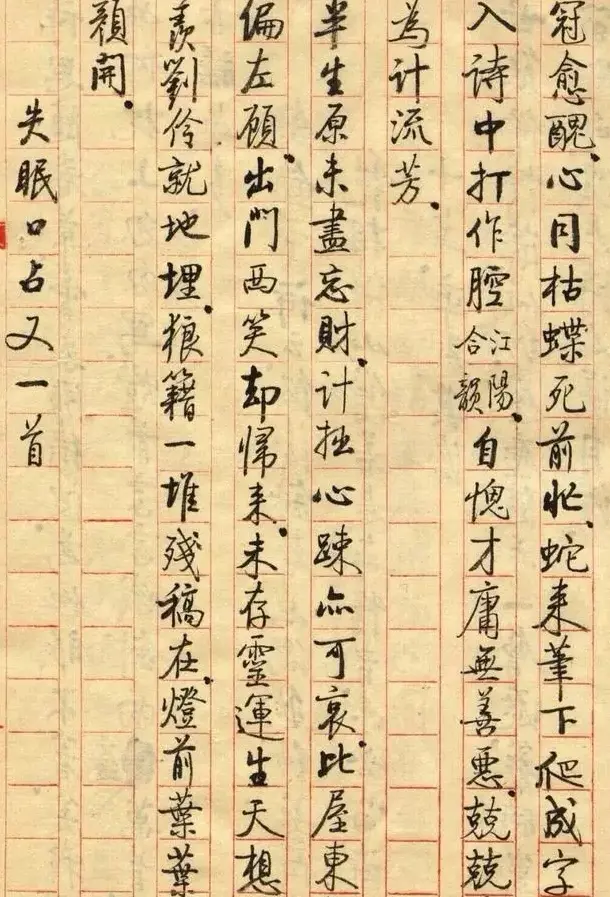 冠愈醜。心同枯蝶死前忙。蛇来筆下爬成字
入詩中打作腔江陽合韻。自愧才庸無善惡。兢兢
為計流芳。
半生原未盡忘財。計拙心疎亦可哀。比屋東
偏左顧。出門西笑却歸来。未存靈運生天想
羨劉伶就地埋。狼籍一堆殘稿在。燈前葉葉
顏開。
失眠口占又一首